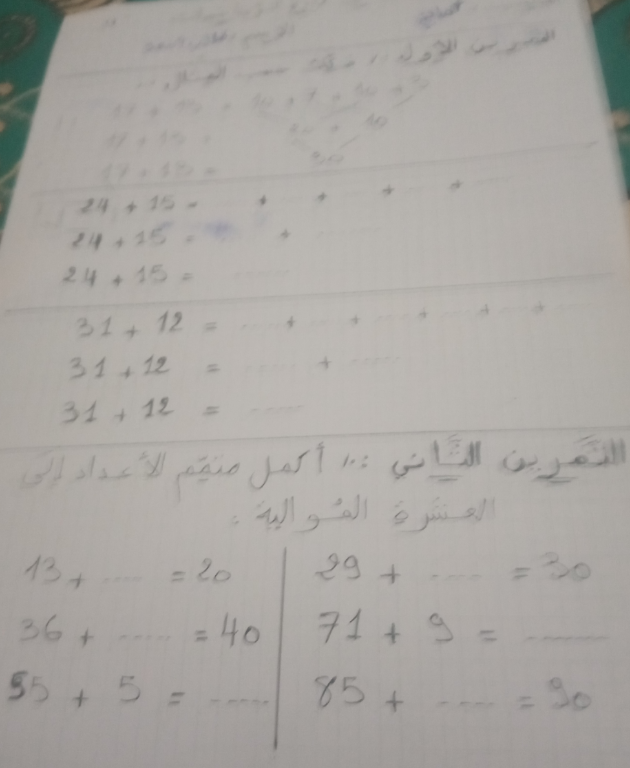 التمرين الأول :
17 + 13 = 10 + 7 + 10 + 3
20 + 10
17 + 13 =
30
17 + 13 =
24 + 15 = + + +
24 + 15 = + ......
24 + 15 = ......
31 + 12 = ..... + .... + .... + .... + ....
31 + 12 = ..... + ......
31 + 12 = ......
التمرين الثاني :. أكمل متمم الأعداد إلى
العشرة الموالية :
13 + .... = 20
29 + .... = 30
36 + ..... = 40
71 + 9 = ........
55 + 5 = ......
85 + .... = 90